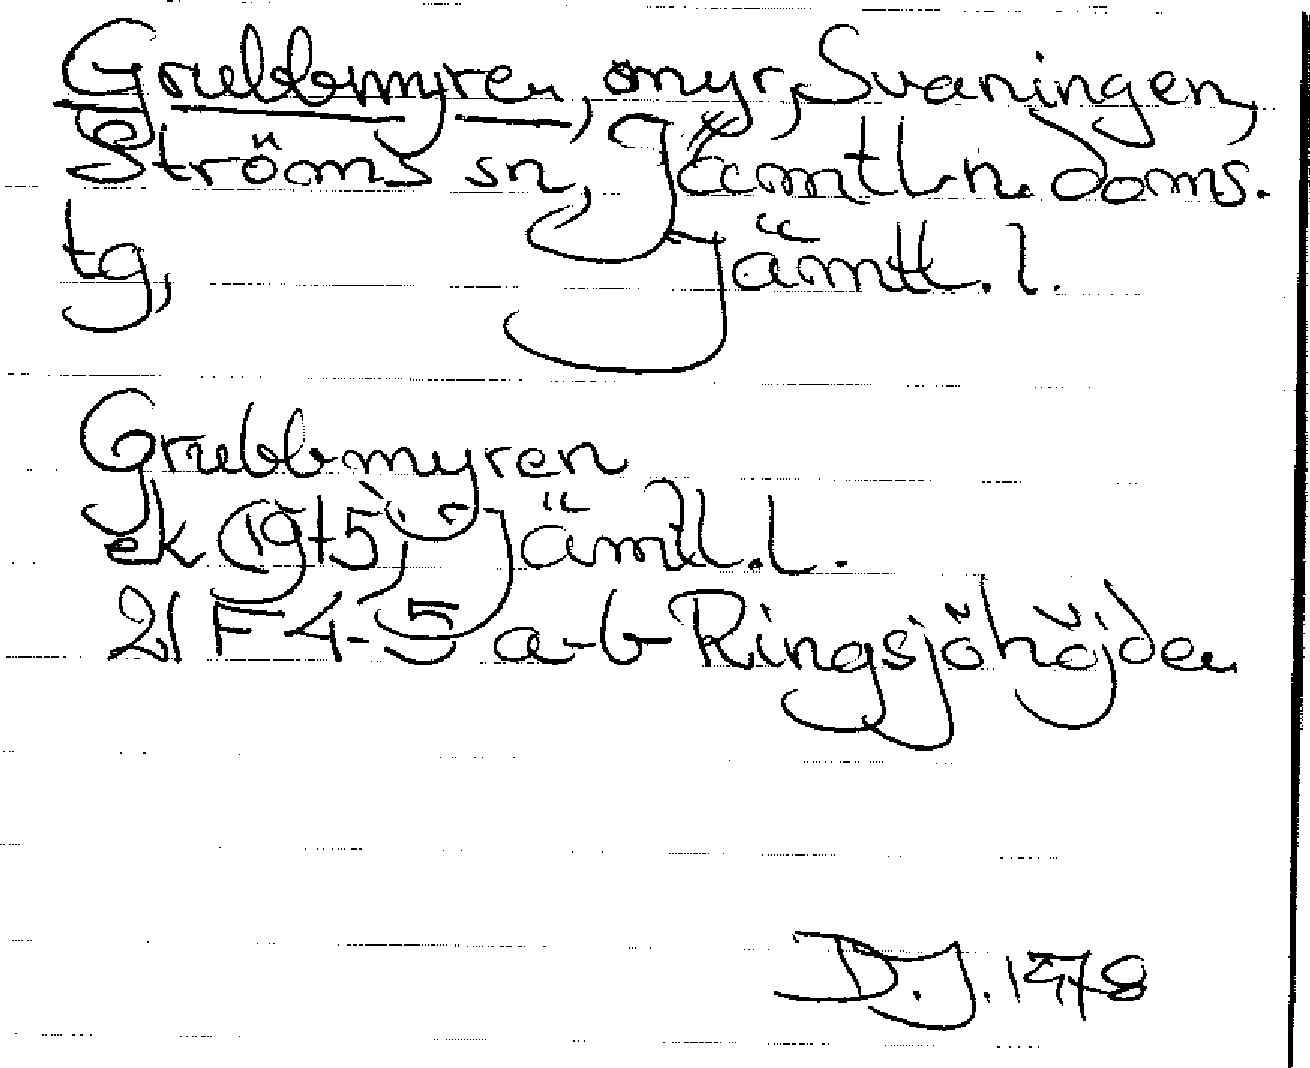 Grubbmyren, myr, Svaningen,
Ströms sn, Jämtl. n. doms.
tg, Jämtl. l.
Grubbmyren
ek (1975), Jämtl. l.
21 F 4-5 a-b Ringsjöhöjden
D.J. 1978